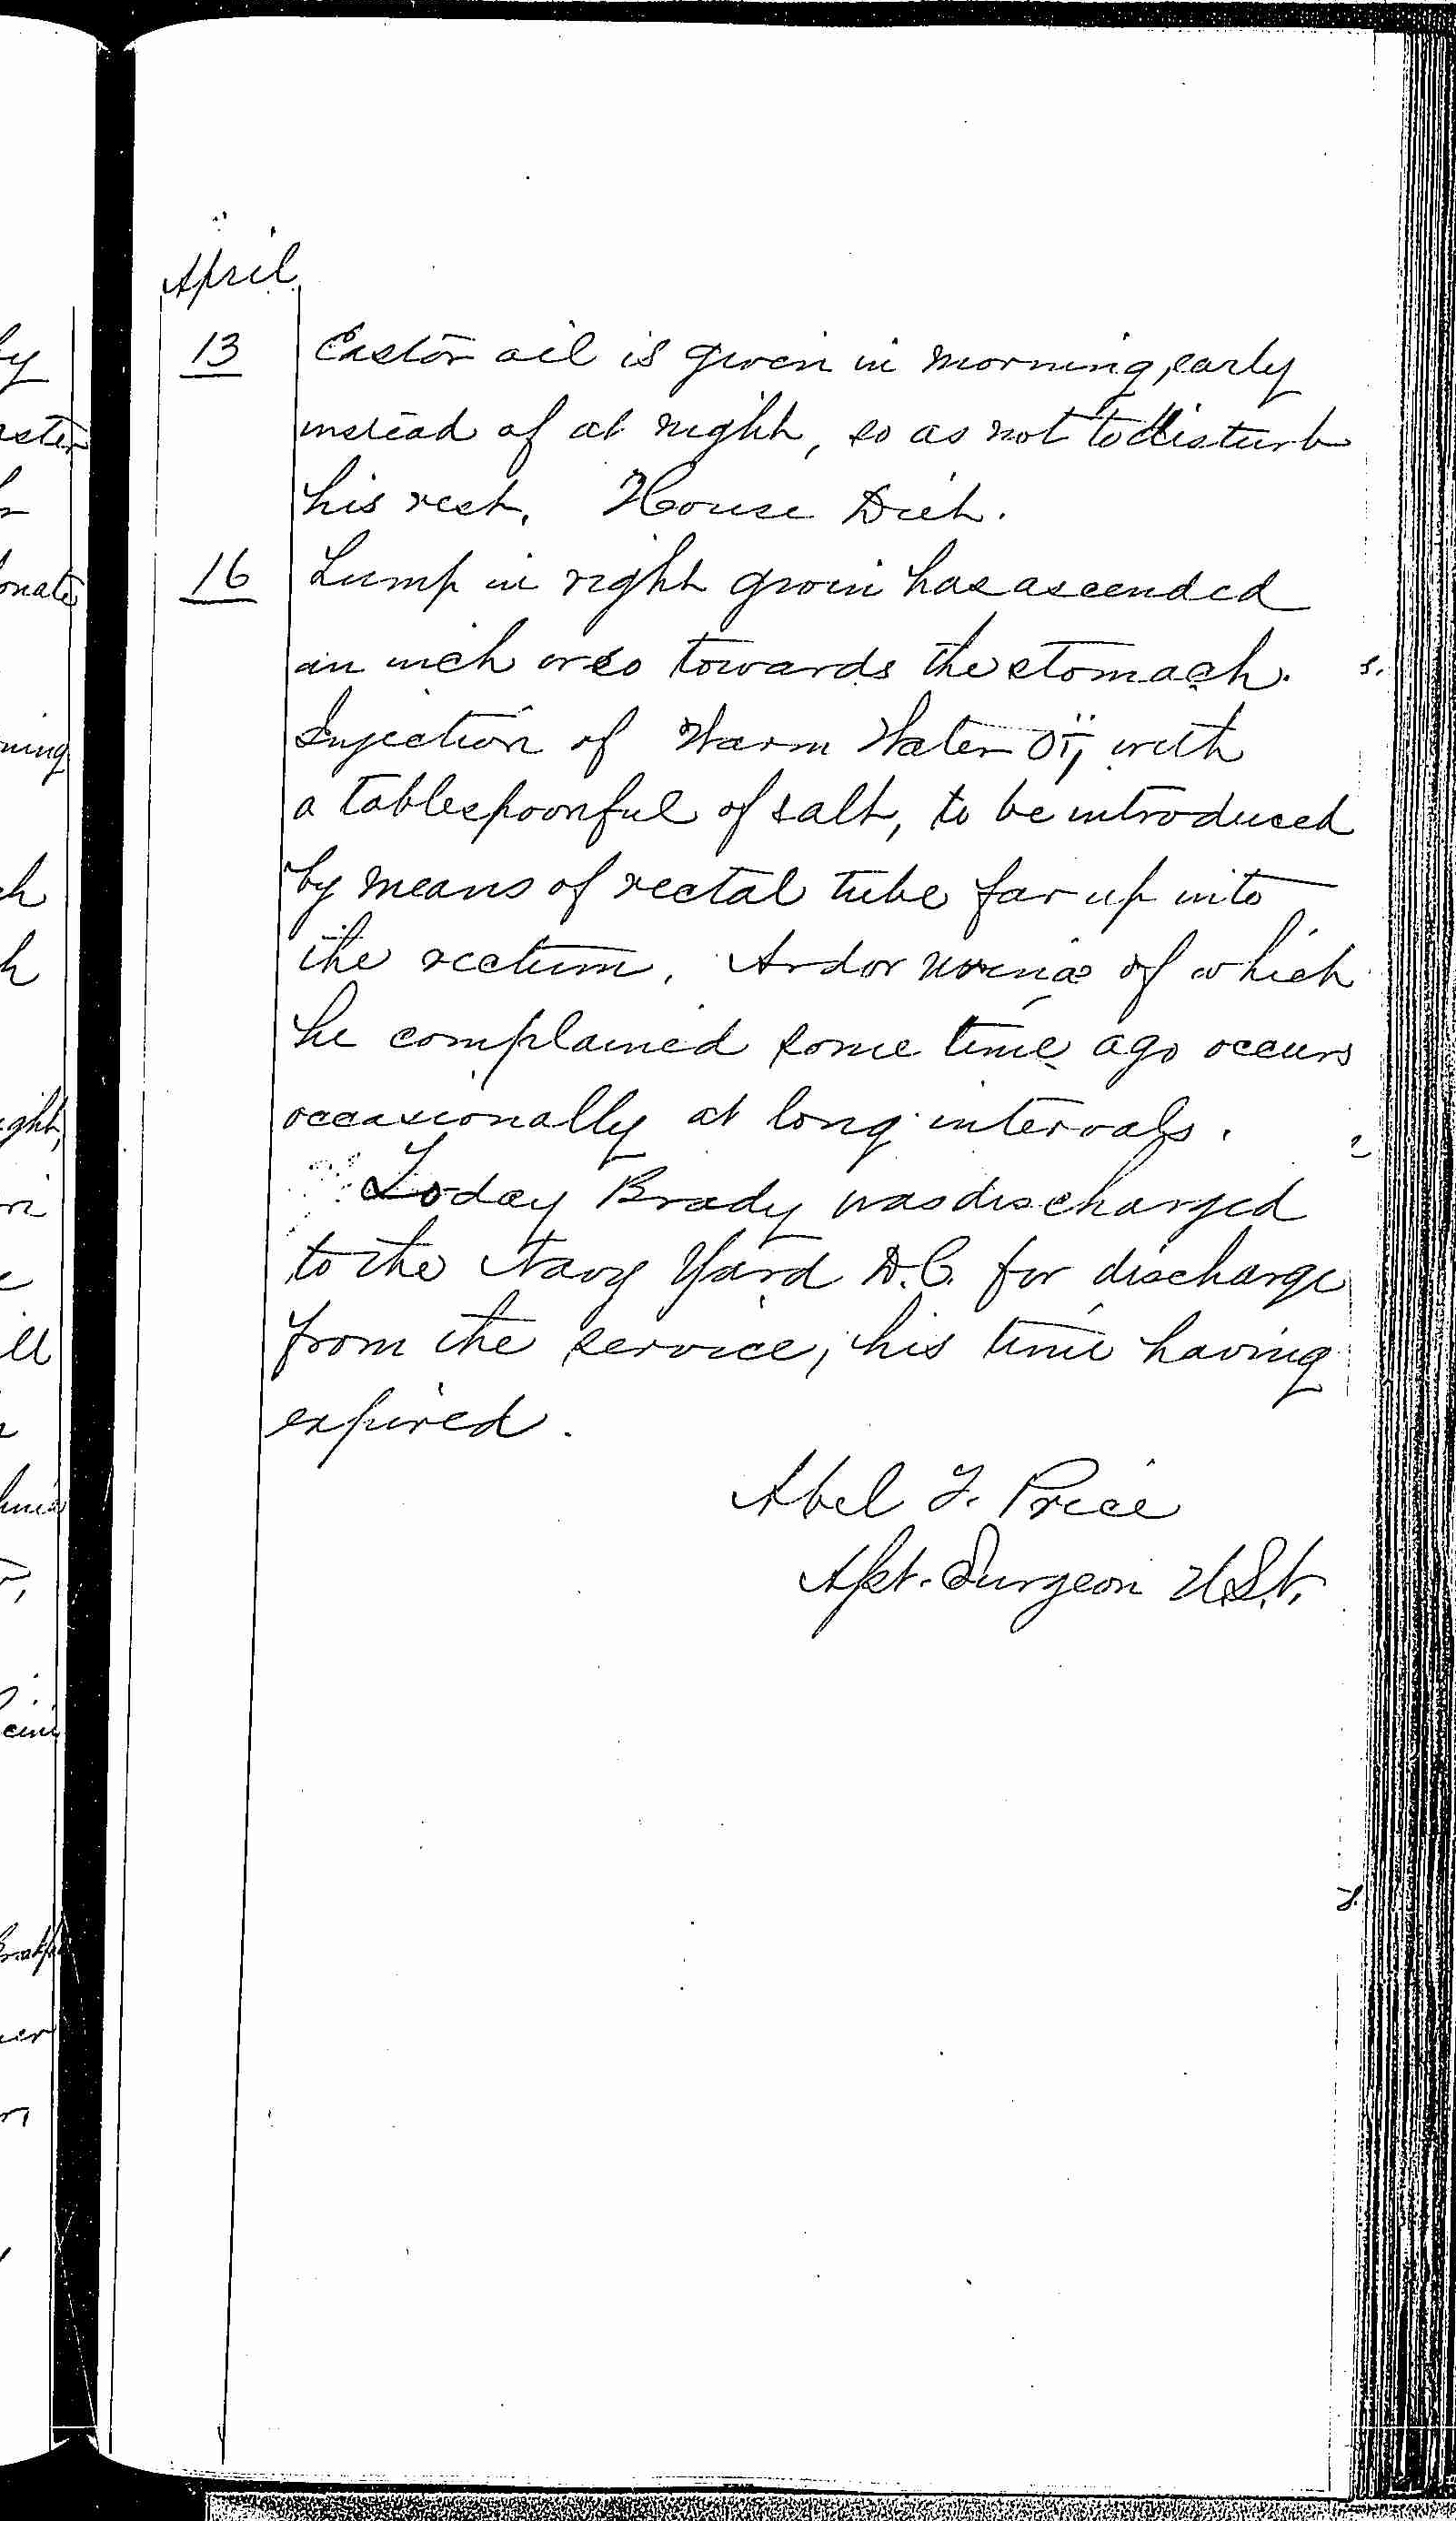 April
13 Castor oil is given in morning, early
instead of at night, so as not to disturb
his rest. House Diet.
16 Lump in right groin has ascended
an inch or so towards the stomach.
Injection of Warm Water Oij, with
a tablespoonful of salt, to be introduced
by means of rectal tube far up into
the rectum. Ardor urinæ of which
he complained some time ago occurs
occasionally at long intervals.
Today Brady was discharged
to the Navy Yard D.C. for discharge
from the service, his time having
expired.
Abel F. Price
Asst. Surgeon U.S.N.